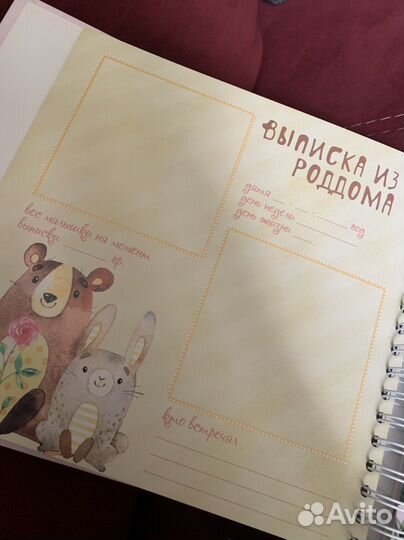 ВЫПИСКА ИЗ
РОДДОМА
дата __ . __ . ____ год
день недели ______
день жизни ___
вес малышки на момент
выписки ______ гр.
кто встречал
Avito